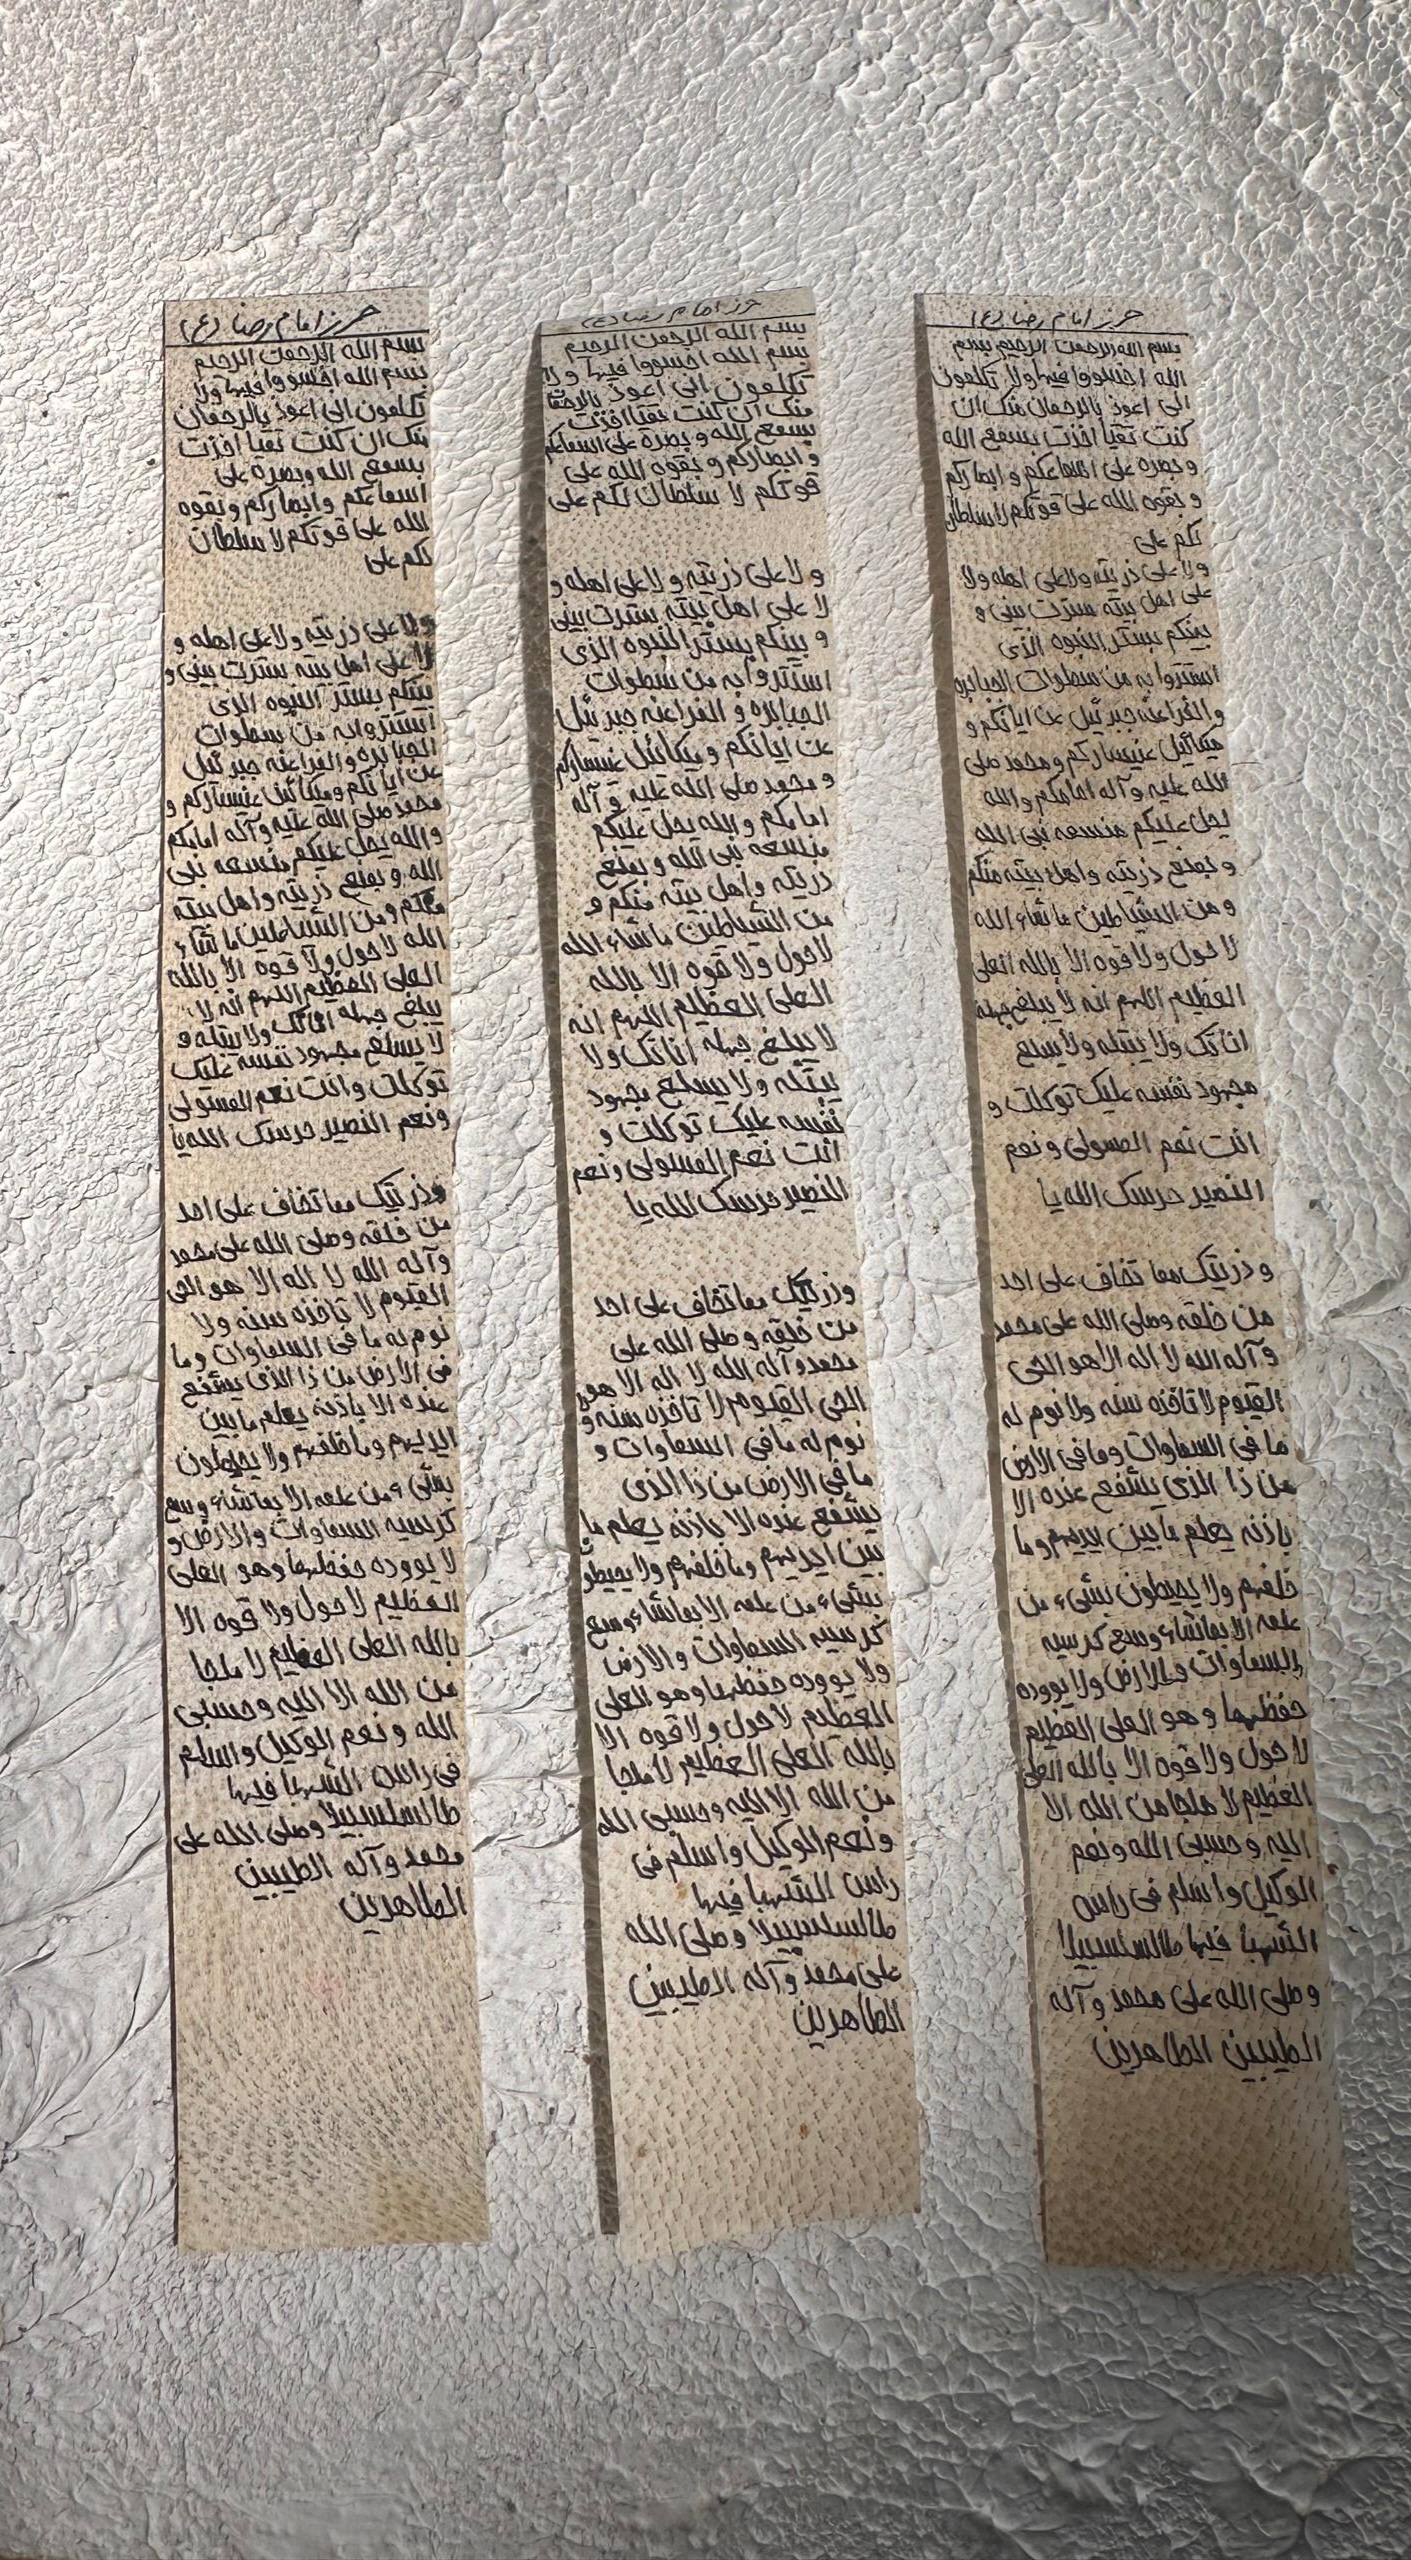 حرز امام رضا (ع)
بسم الله الرحمن الرحیم بسم
الله اخسووا فیها ولا تکلمون
انی اعوذ بالرحمان منک ان
کنت تقیا اخزت بسمع الله
و بصره علی اسماعکم و ابصارکم
و بقوه الله علی قوتکم لا سلطان
لکم علی
ولا علی ذریته ولا علی اهله ولا
علی اهل بیته سترت بینی و
بینکم بستر النبوه الذی
استتروا به من سطوات الجبابره
والفراعنه جبرئیل عن ایانکم و
میکائیل عنیسارکم و محمد صلی
الله علیه و آله امامکم والله
یحل علیکم منسعه نبی الله
و بمنع ذریته واهل بیته منکم
و من الشیاطین ماشاء الله
لا حول ولا قوه الا بالله العلی
العظیم اللهم انه لا یبلغ جهله
اناتک ولا یبتله ولا یسلع
مجهود نفسه علیک توکلت و
انت نعم المسولی و نعم
النصیر حرسک الله یا
و ذریتک مما تخاف علی احد
من خلقه وصلی الله علی محمد
و آله الله لا اله الا هو الحی
القیوم لا تاخذه سنه ولا نوم له
ما فی السماوات وما فی الارض
من ذا الذی یشفع عنده الا
باذنه یعلم ما بین ایدیهم وما
خلفهم ولا یحیطون بشیء من
علمه الا بماشاء وسع کرسیه
السماوات والارض ولا یووده
حفظهما و هو العلی العظیم
لا حول ولا قوه الا بالله العلی
العظیم لا ملجا من الله الا
الیه و حسبی الله و نعم
الوکیل واسلم فی راس
الشهبا فیها طالسلسبیلا
وصلی الله علی محمد و آله
الطیبین الطاهرین
حرز امام رضا (ع)
بسم الله الرحمن الرحیم
بسم الله اخسووا فیها ولا
تکلمون انی اعوذ بالرحمان
منک ان کنت تقیا اخزت
بسمع الله و بصره علی اسماعکم
و ابصارکم و بقوه الله علی
قوتکم لا سلطان لکم علی
ولا علی ذریته ولا علی اهله و
لا علی اهل بیته سترت بینی
و بینکم بستر النبوه الذی
استتروا به من سطوات
الجبابره و الفراعنه جبرئیل
عن ایانکم و میکائیل عنیسارکم
و محمد صلی الله علیه و آله
امامکم و الله یحل علیکم
منسعه نبی الله و بمنع
ذریته و اهل بیته منکم و
من الشیاطین ماشاء الله
لاحول ولا قوه الا بالله
العلی العظیم اللهم انه
لا یبلغ جهله اناتک ولا
یبتله ولا یسلع مجهود
نفسه علیک توکلت و
انت نعم المسولی و نعم
النصیر حرسک الله یا
وذریتک مما تخاف علی احد
من خلقه و صلی الله علی
محمد و آله الله لا اله الا هو
الحی القیوم لا تاخذه سنه و
نوم له ما فی السماوات و
ما فی الارض من ذا الذی
یشفع عنده الا باذنه یعلم ما
بین ایدیهم وما خلفهم ولا یحیطو
بشیء من علمه الا بماشاء وسع
کرسیه السماوات والارض
ولا یووده حفظهما وهو العلی
العظیم لا حول ولا قوه الا
بالله العلی العظیم لا ملجا
من الله الا الیه وحسبی الله
ونعم الوکیل واسلم فی
راس الشهبا فیها
طالسلسبیلا وصلی الله
علی محمد و آله الطیبین
الطاهرین
حرز امام رضا (ع)
بسم الله الرحمن الرحیم
بسم الله اخسووا فیها ولا
تکلمون انی اعوذ بالرحمان
منک ان کنت تقیا اخزت
بسمع الله وبصره علی
اسماعکم و ابصارکم وبقوه
الله علی قوتکم لا سلطان
لکم علی
ولا علی ذریته ولا علی اهله و
لا علی اهل بیته سترت بینی و
بینکم بستر النبوه الذی
استتروا به من سطوات
الجبابره والفراعنه جبرئیل
عن ایانکم ومیکائیل عنیسارکم و
محمد صلی الله علیه وآله امامکم
والله یحل علیکم منسعه نبی
الله و بمنع ذریته واهل بیته
منکم ومن الشیاطین ماشاء
الله لا حول ولا قوه الا بالله
العلی العظیم اللهم انه لا
یبلغ جهله اناتک ولا یبتله و
لا یسلع مجهود نفسه علیک
توکلت وانت نعم المسولی
ونعم النصیر حرسک الله یا
وذریتک مما تخاف علی احد
من خلقه وصلی الله علی محمد
وآله الله لا اله الا هو الحی
القیوم لا تاخذه سنه ولا
نوم له ما فی السماوات وما
فی الارض من ذا الذی یشفع
عنده الا باذنه یعلم ما بین
ایدیهم وما خلفهم ولا یحیطون
بشیء من علمه الا بماشاء وسع
کرسیه السماوات والارض و
لا یووده حفظهما وهو العلی
العظیم لا حول ولا قوه الا
بالله العلی العظیم لا ملجا
من الله الا الیه و حسبی
الله و نعم الوکیل واسلم
فی راس الشهبا فیها
طالسلسبیلا وصلی الله علی
محمد وآله الطیبین
الطاهرین